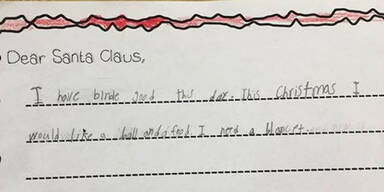 Dear Santa Claus,
I have binde good this day. This Christmas I
would like a ball and a food. I need a blancet.